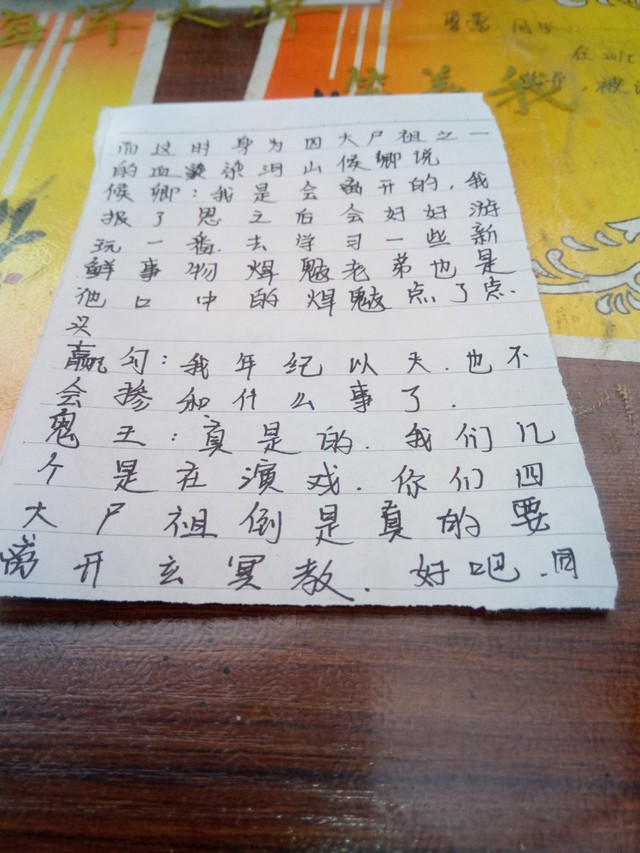 而这时身为四大尸祖之一
的血染泪山候卿说
候卿:我是会离开的,我
报了恩之后会好好游
玩一番去学习一些新
鲜事物焊魃老弟也是
他口中的焊魃点了点
头
赢勾:我年纪以大.也不
会掺和什么事了.
鬼王:真是的.我们几
个是在演戏.你们四
大尸祖倒是真的要
离开玄冥教.好吧.同